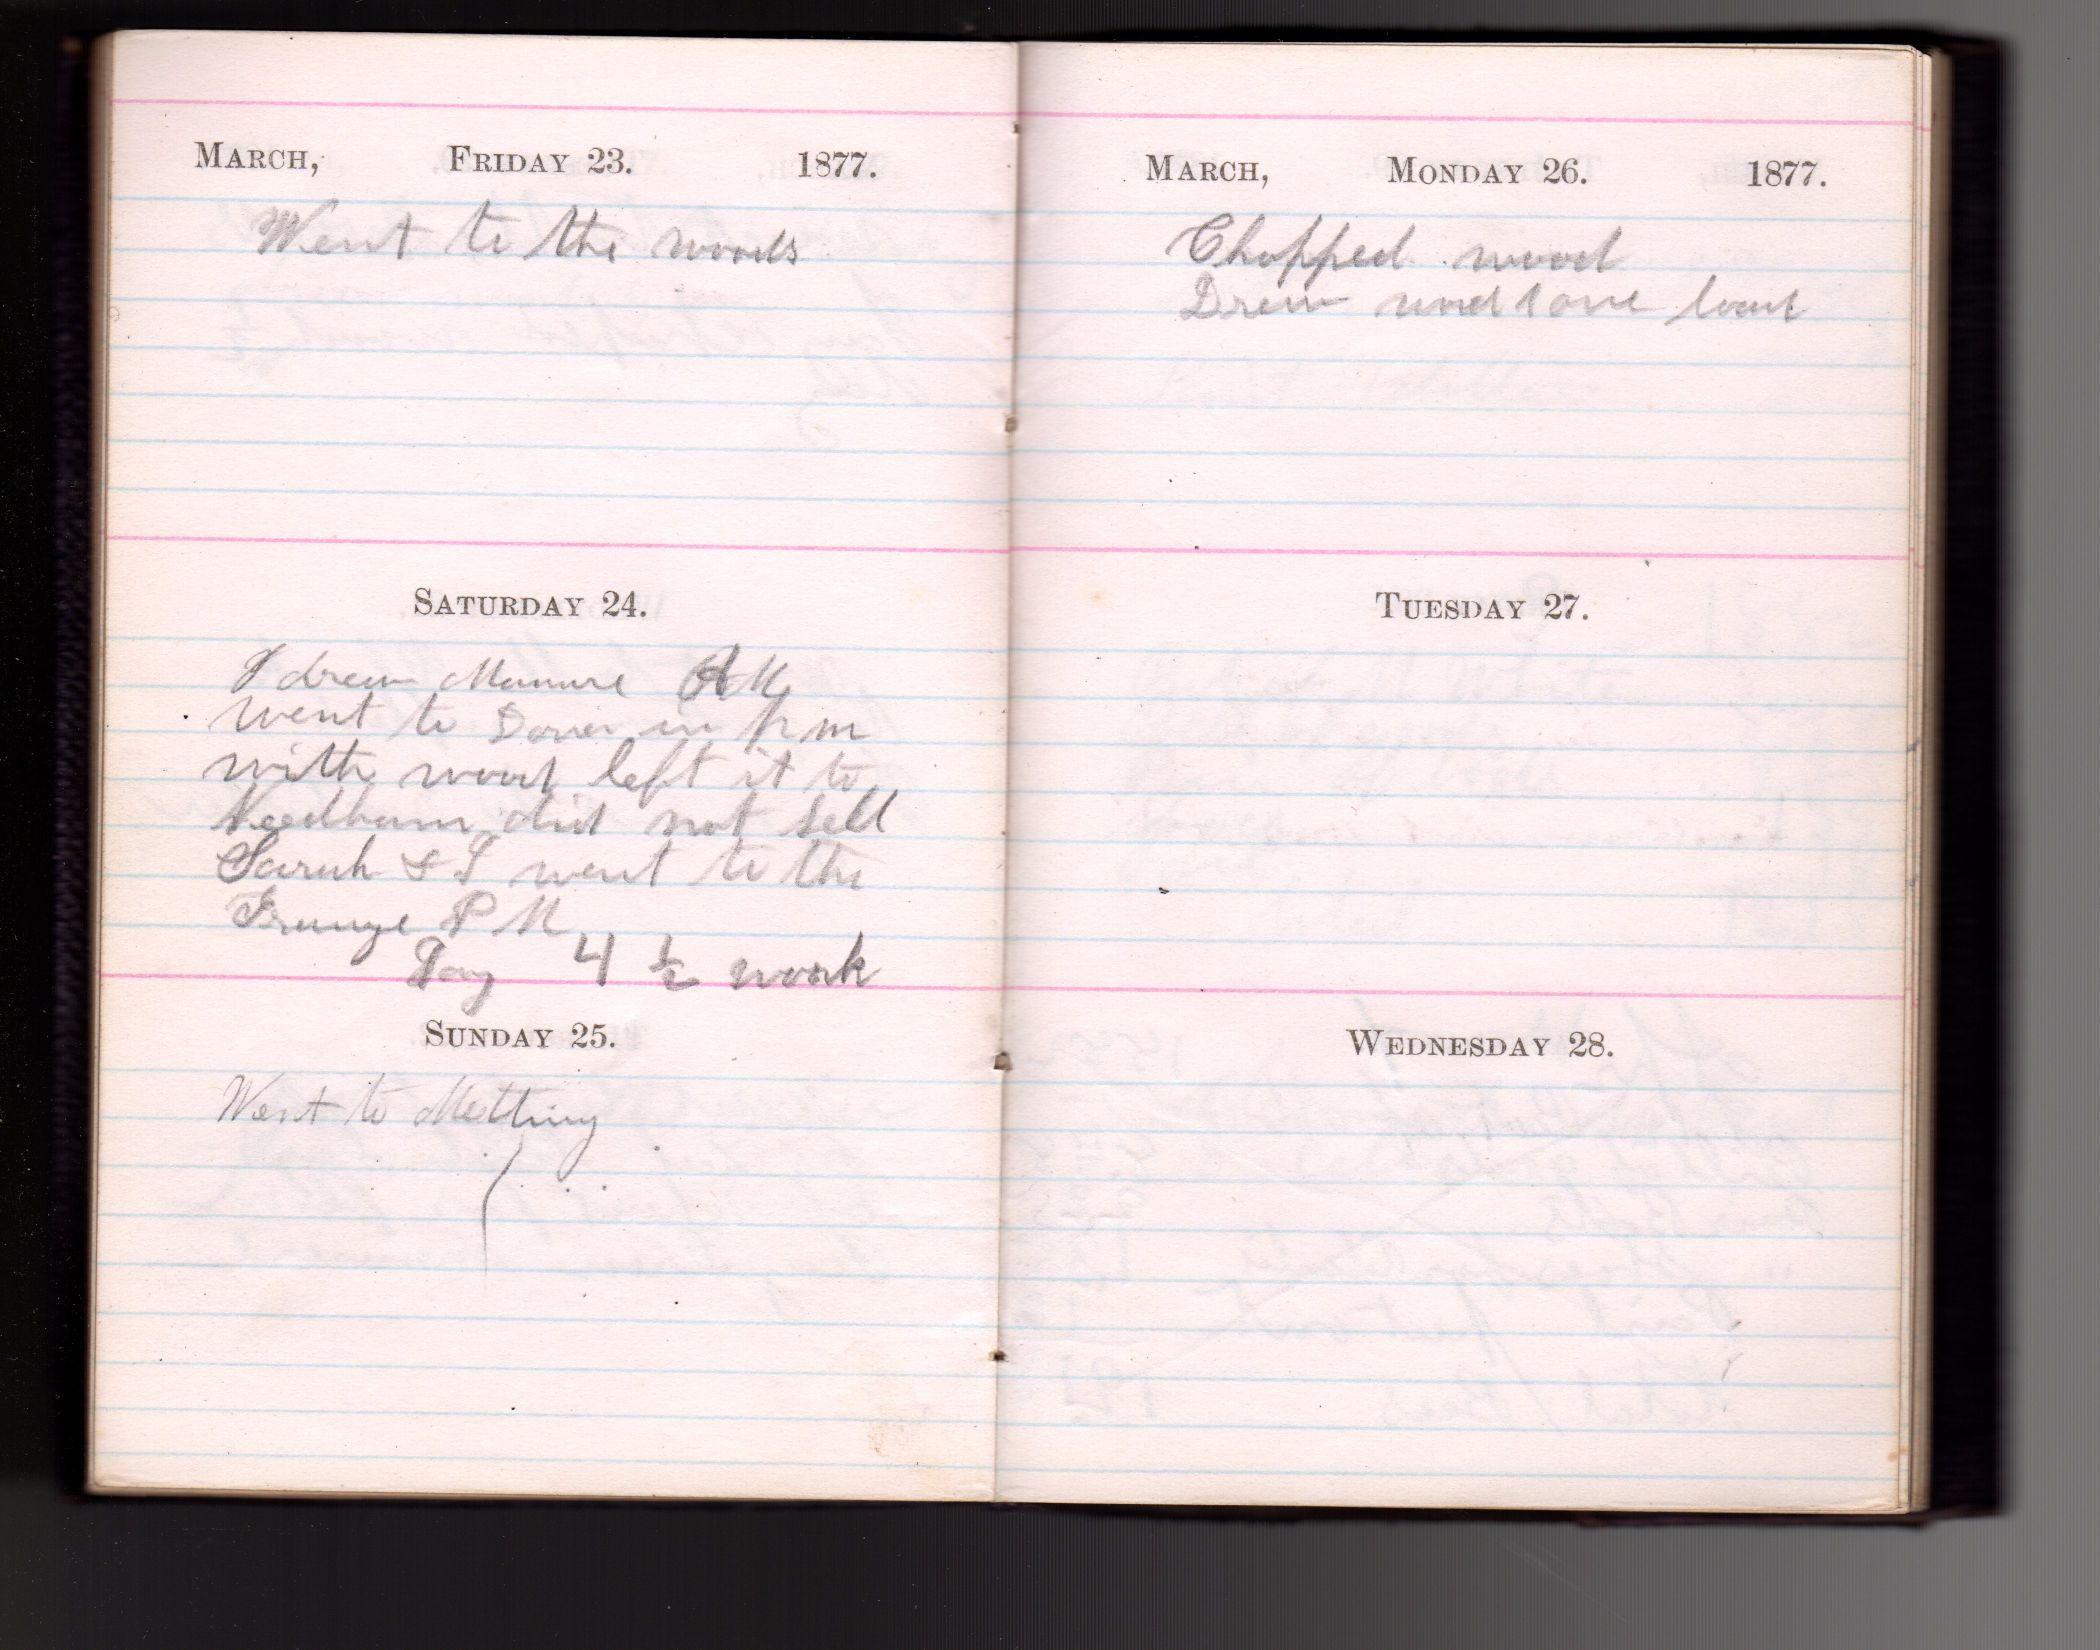 MARCH, FRIDAY 23. 1877.
Went to the woods
SATURDAY 24.
I drew Manure AM
went to Dover in pm
with wood left it to
Needham did not sell
Sarah & I went to the
Grange P M
Day 4 ½ work
SUNDAY 25.
Went to Metting
MARCH, MONDAY 26. 1877.
Chopped wood
Drew wood 1 one load
TUESDAY 27.
WEDNESDAY 28.